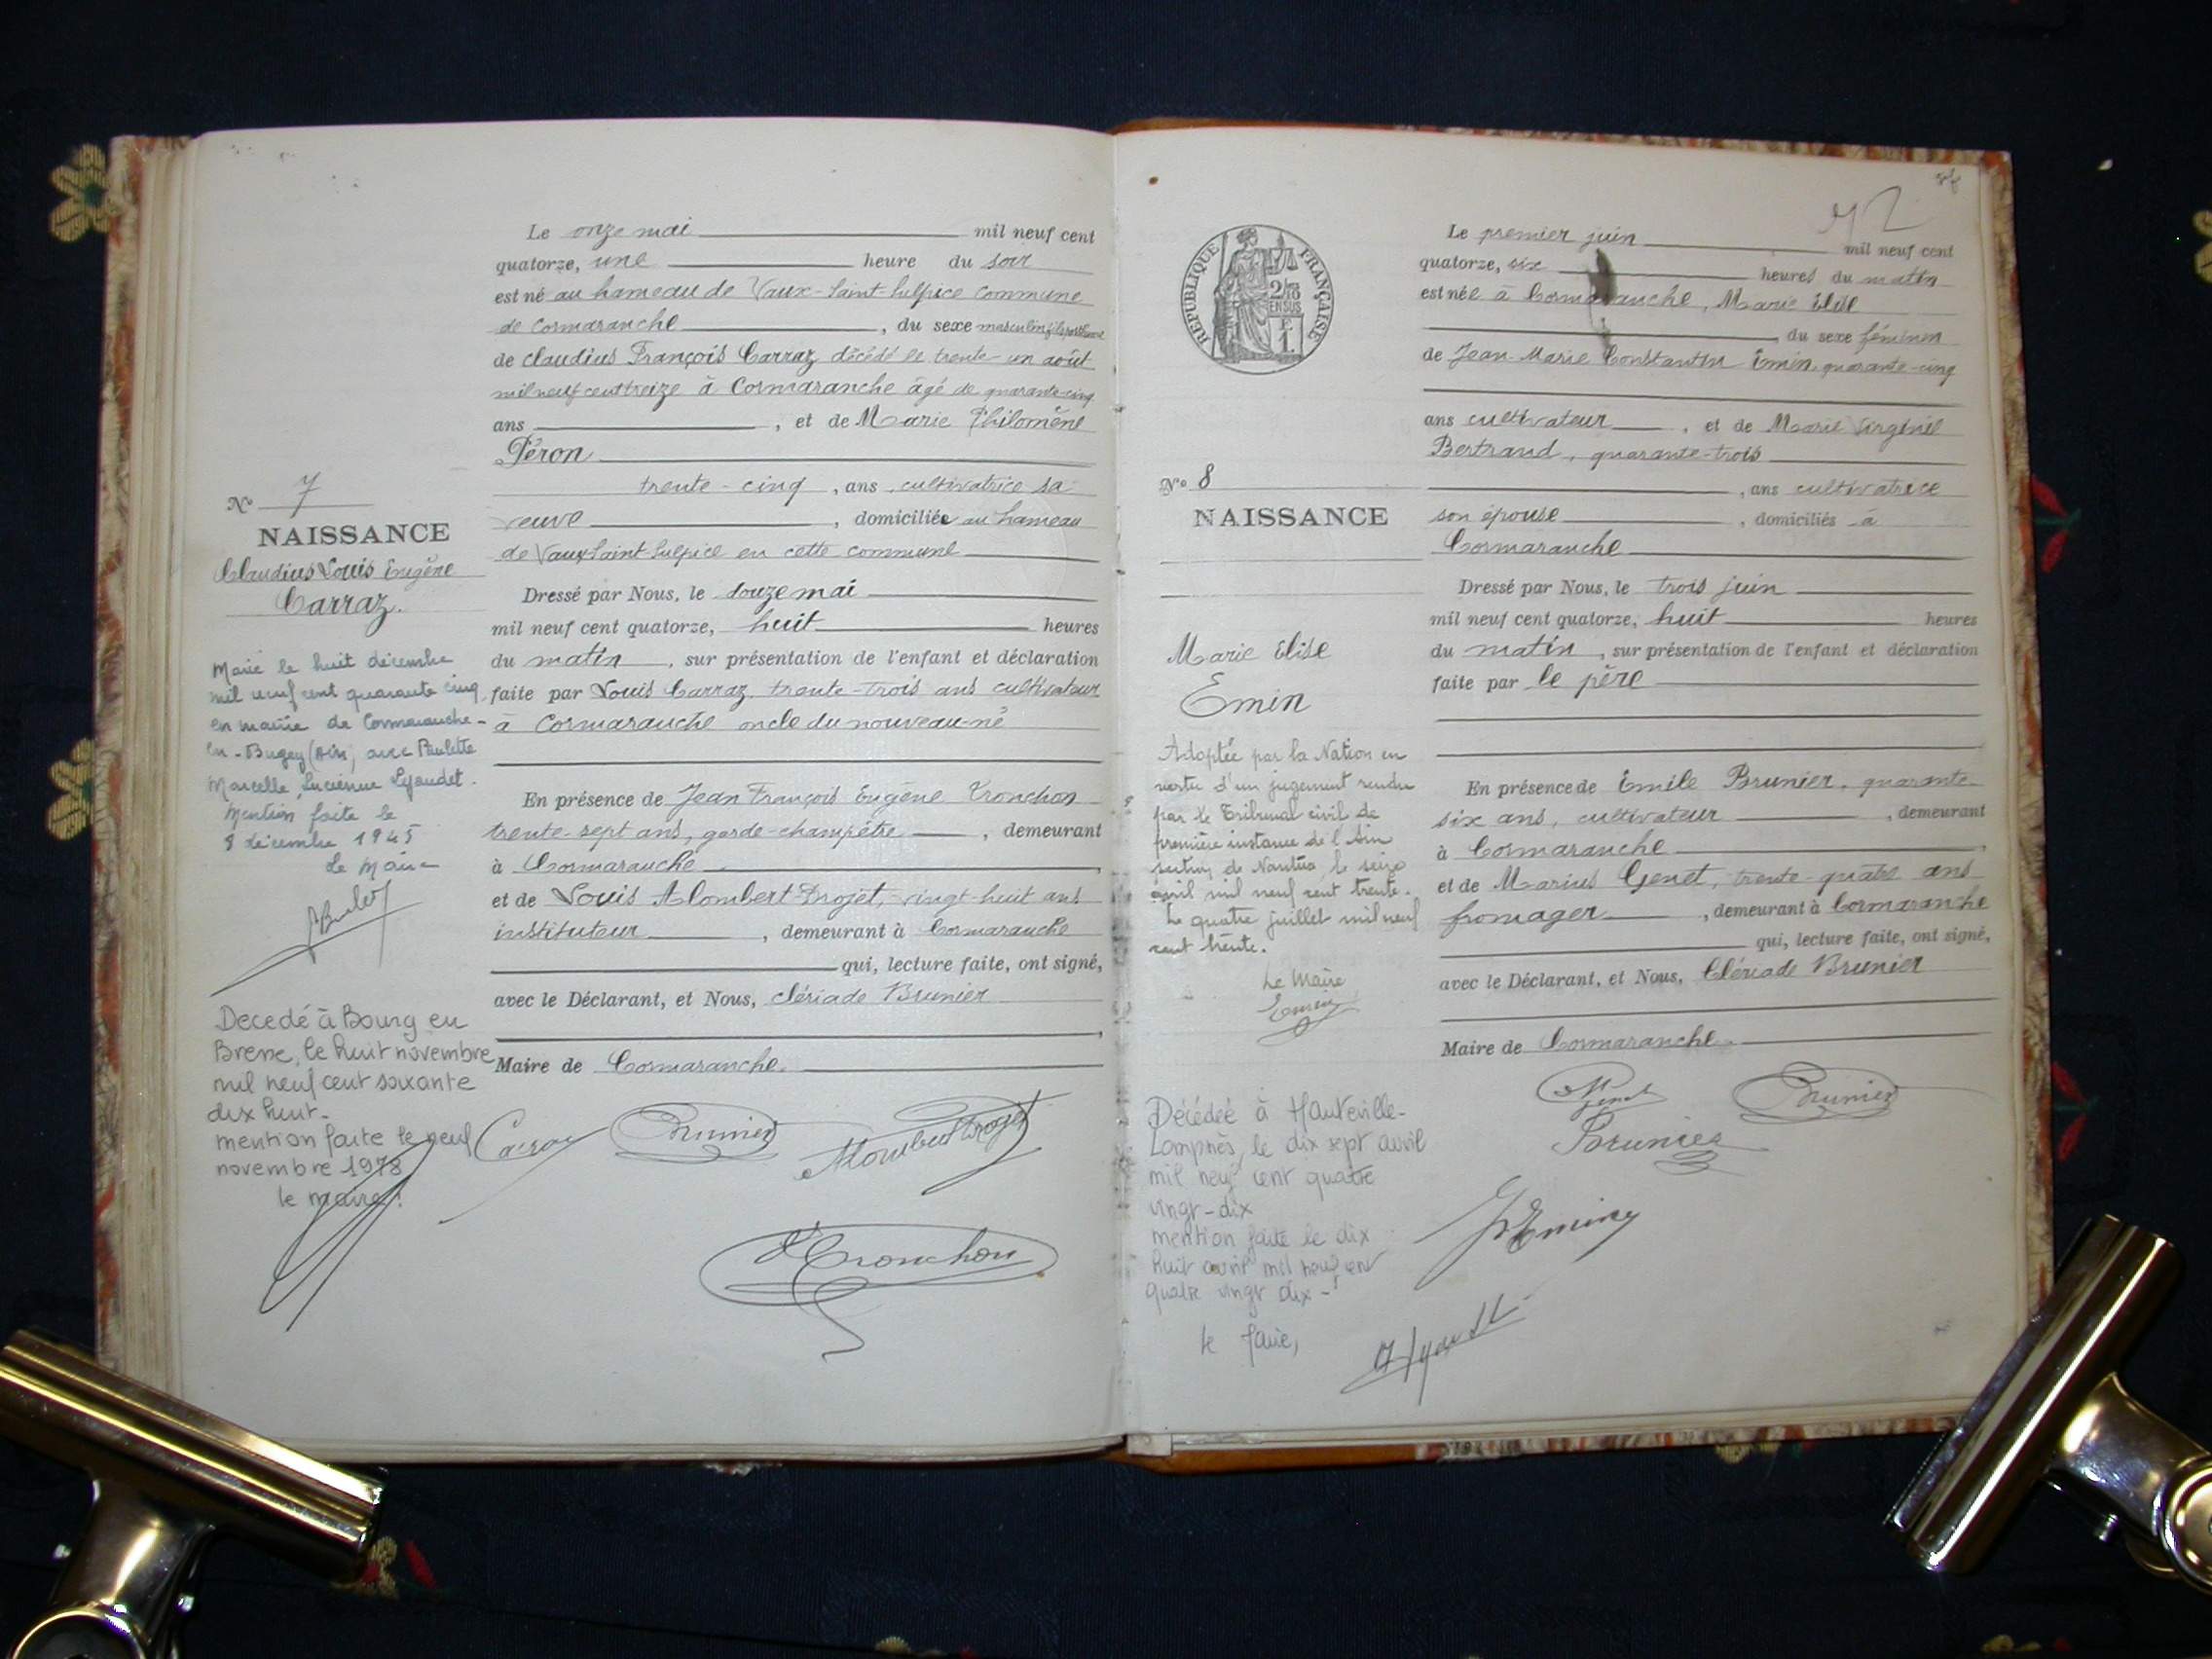 Le onze mai mil neuf cent
quatorze, une heure du soir
est né au hameau de Vaux-Saint-Sulpice commune
de Cormaranche, du sexe masculin fils posthume
de Claudius François Carraz décédé le trente-un août
mil neuf cent treize à Cormaranche âgé de quarante-cinq
ans, et de Marie Philomène
Péron
trente-cinq, ans, cultivatrice sa
veuve, domiciliée au hameau
de Vaux Saint Sulpice en cette commune
N° 7
NAISSANCE
Claudius Louis Eugène
Carraz.
Dressé par Nous, le douze mai
mil neuf cent quatorze, huit heures
du matin, sur présentation de l'enfant et déclaration
faite par Louis Carraz, trente-trois ans cultivateur
à Cormaranche oncle du nouveau-né
En présence de Jean François Eugène Tronchon
trente-sept ans, garde-champêtre, demeurant
à Cormaranche
et de Louis Alombert-Drojet, vingt-huit ans
instituteur, demeurant à Cormaranche
qui, lecture faite, ont signé,
avec le Déclarant, et Nous, Clériade Brunier
Maire de Cormaranche.
Marié le huit décembre
mil neuf cent quarante cinq
en mairie de Cormaranche-
en-Bugey (Ain) avec Paulette
Marcelle, Lucienne Lyaudet.
Mention faite le
8 décembre 1945
Le Maire
Decedé à Bourg en
Bresse, le huit novembre
mil neuf cent soixante
dix huit-
mention faite le neuf
novembre 1978
le maire:
Carraz
Brunier
Alombert Drojet
Tronchon
RÉPUBLIQUE FRANÇAISE
Le premier juin mil neuf cent
quatorze, six heures du matin
est née à Cormaranche, Marie Elise
du sexe féminin
de Jean-Marie Constantin Emin quarante-cinq
ans cultivateur, et de Marie Virginie
Bertrand, quarante-trois
, ans cultivatrice
son épouse, domiciliés à
Cormaranche
N° 8
NAISSANCE
Marie Elise
Emin
Dressé par Nous, le trois juin
mil neuf cent quatorze, huit heures
du matin, sur présentation de l'enfant et déclaration
faite par le père
En présence de Emile Brunier, quarante-
six ans, cultivateur, demeurant
à Cormaranche
et de Marius Genet, trente-quatre ans
fromager, demeurant à Cormaranche
qui, lecture faite, ont signé,
avec le Déclarant, et Nous, Clériade Brunier
Maire de Cormaranche.
Adoptée par la Nation en
vertu d'un jugement rendu
par le Tribunal civil de
première instance de l'Ain
section de Nantua, le seize
avril mil neuf cent trente.
Le quatre juillet mil neuf
cent trente.
Le Maire
Emin
Décédée à Hauteville-
Lompnès, le dix sept avril
mil neuf cent quatre
vingt-dix
mention faite le dix
huit avril mil neuf cent
quatre vingt dix-
le Maire,
Genet
Brunier
Brunier
Emin